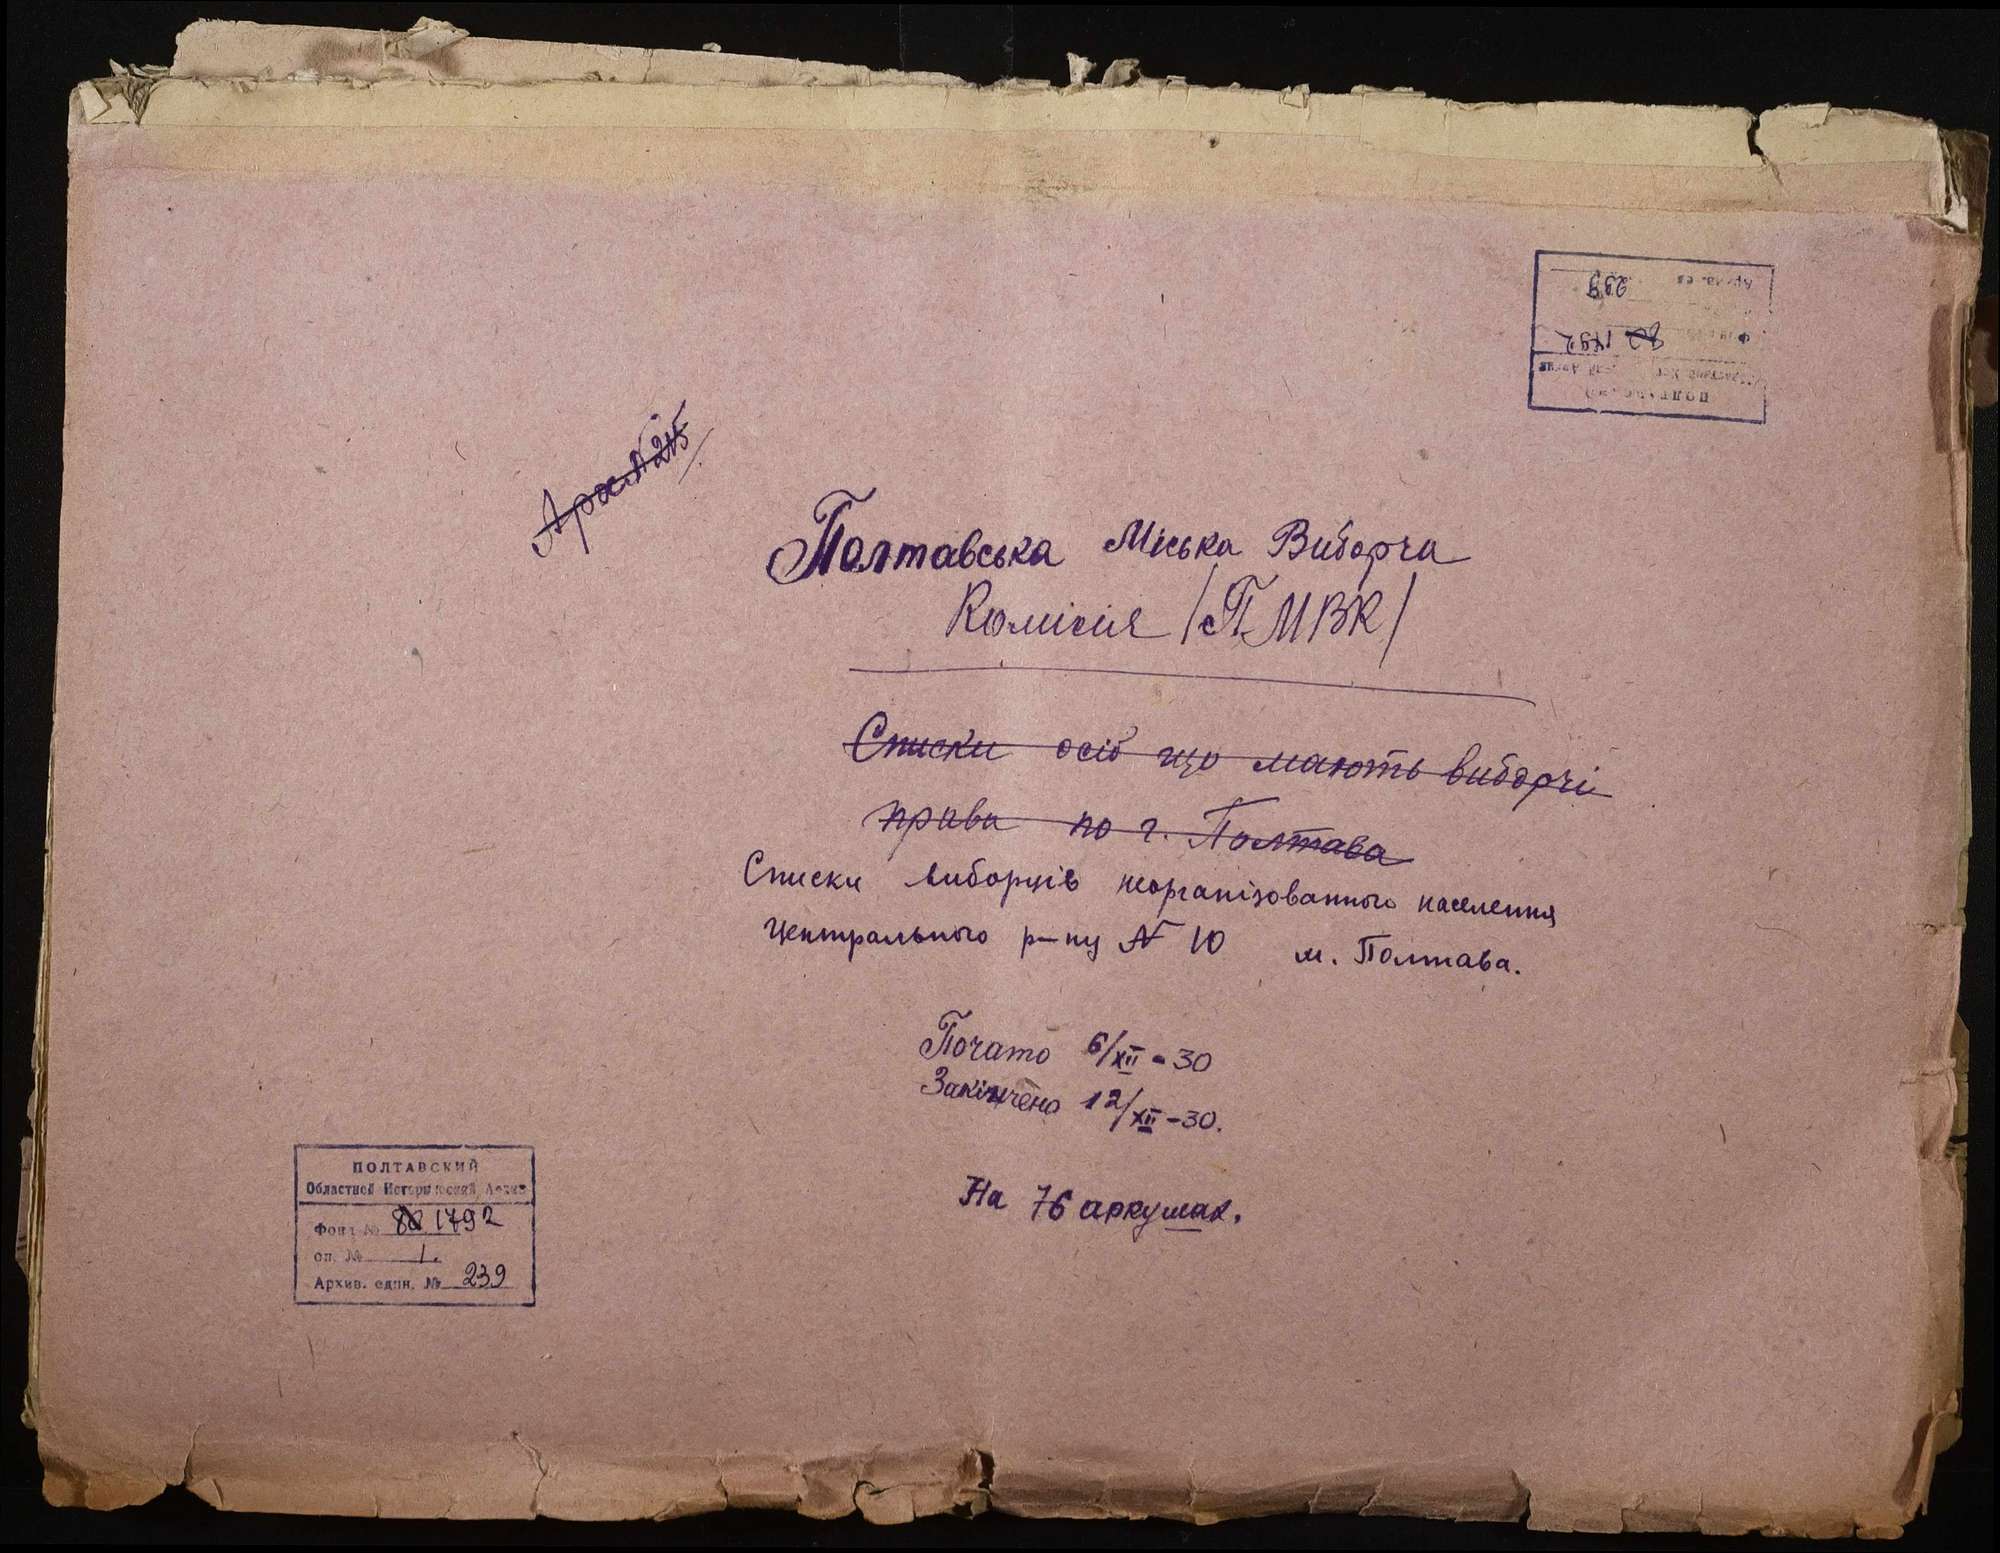 Полтавська Міська Виборча
Комісія /ПМВК/
Списки осіб що мають виборчі
права по г. Полтава
Списки виборців неорганізованного населення
Центрального р-ну № 10 м. Полтава.
Почато 6/XII - 30
Закінчено 12/XII - 30.
На 76 аркушах.
ПОЛТАВСКИЙ
Областной Исторический Архив
Фонд № 1792
оп. № 1.
Архив. един. № 239